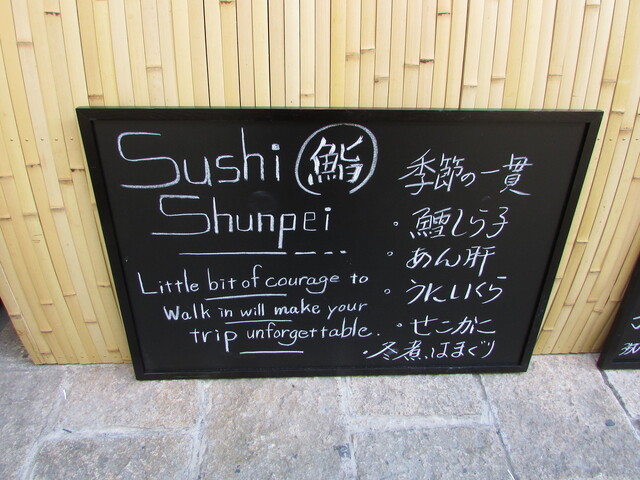 Sushi 鮨
Shunpei
Little bit of courage to
Walk in will make your
trip unforgettable.
季節の一貫
・鱈しら子
・あん肝
・うにいくら
・せこがに
・冬煮はまぐり